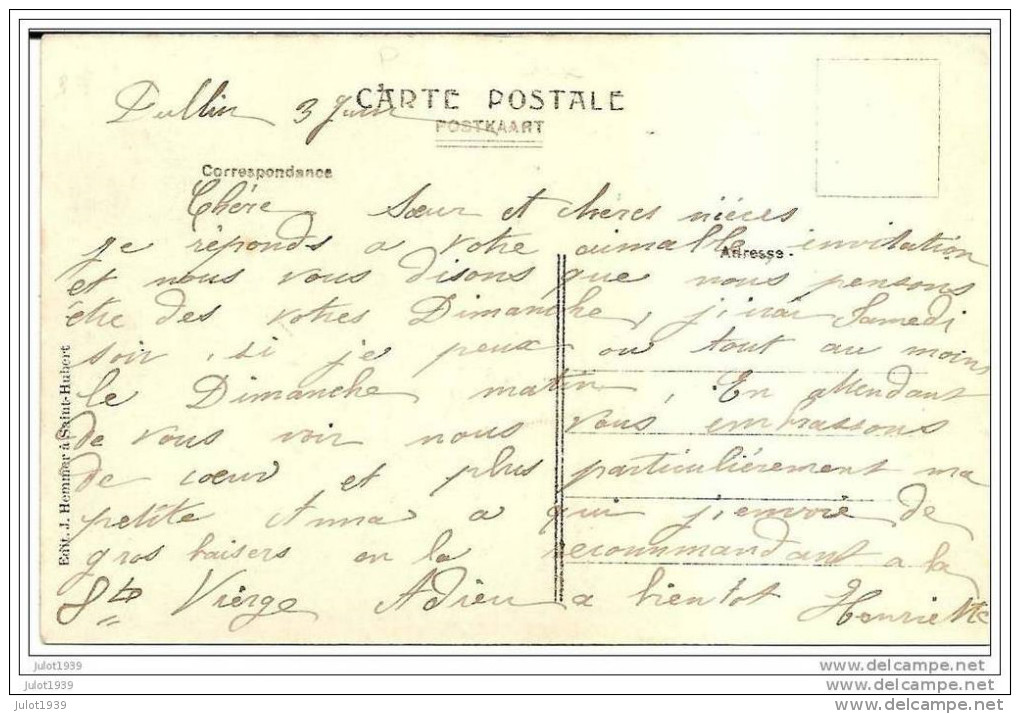 CARTE POSTALE
3 Juin
POSTKAART
Correspondance
Chère Sœur et chères nièces
je réponds a votre aimable invitation
Adresse
et nous vous disons que nous pensons
être des votres Dimanche, j'irai Samedi
soir, si je peux ou tout au moins
le Dimanche matin, En attendant
de vous voir nous vous embrassons
de cœur et plus particulièrement ma
petite Anna a qui j'envoie de
gros baisers en la recommandant a la
Ste Vierge Adieu a bientot Henriette
Edit. J. Hemmer à Saint-Hubert
julot1939
julot1939
julot1939
delcampe.net
delcampe.net
delcampe.net